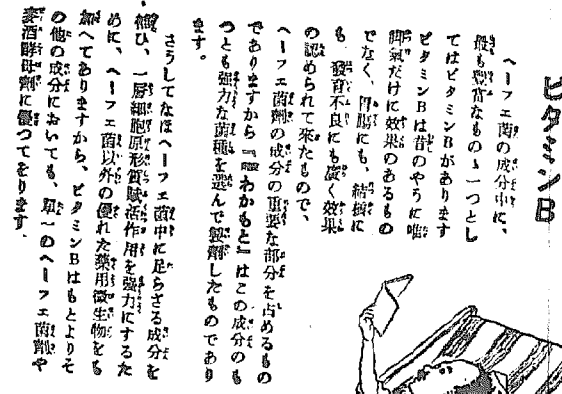 ビタミンB
ヘーフェ菌の成分中に、
最も豊富なものゝ一つとし
てはビタミンBがあります
ビタミンBは昔のやうに唯
脚氣だけに效果のあるもの
でなく、胃腸にも、結核に
も、發育不良にも廣く效果
の認められて來たもので、
ヘーフェ菌劑の成分の重要な部分を占めるもの
でありますから『わかもと』はこの成分のも
つとも強力な菌種を選んで製劑したものであり
ます。
さうしてなほヘーフェ菌中に足らざる成分を
補ひ、一層細胞原形質賦活作用を強力にするた
めに、ヘーフェ菌以外の優れた藥用微生物をも
加へてありますから、ビタミンBはもとよりそ
の他の成分においても、單一のヘーフェ菌劑や
麥酒酵母劑に優つてをります。